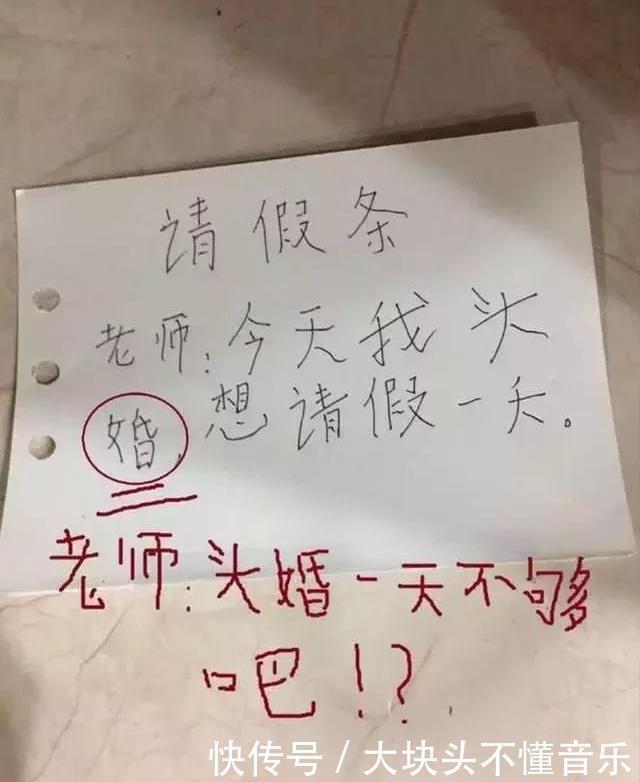 请假条
老师:今天我头
婚,想请假一天。
老师:头婚一天不够
吧!?
快传号/大块头不懂音乐